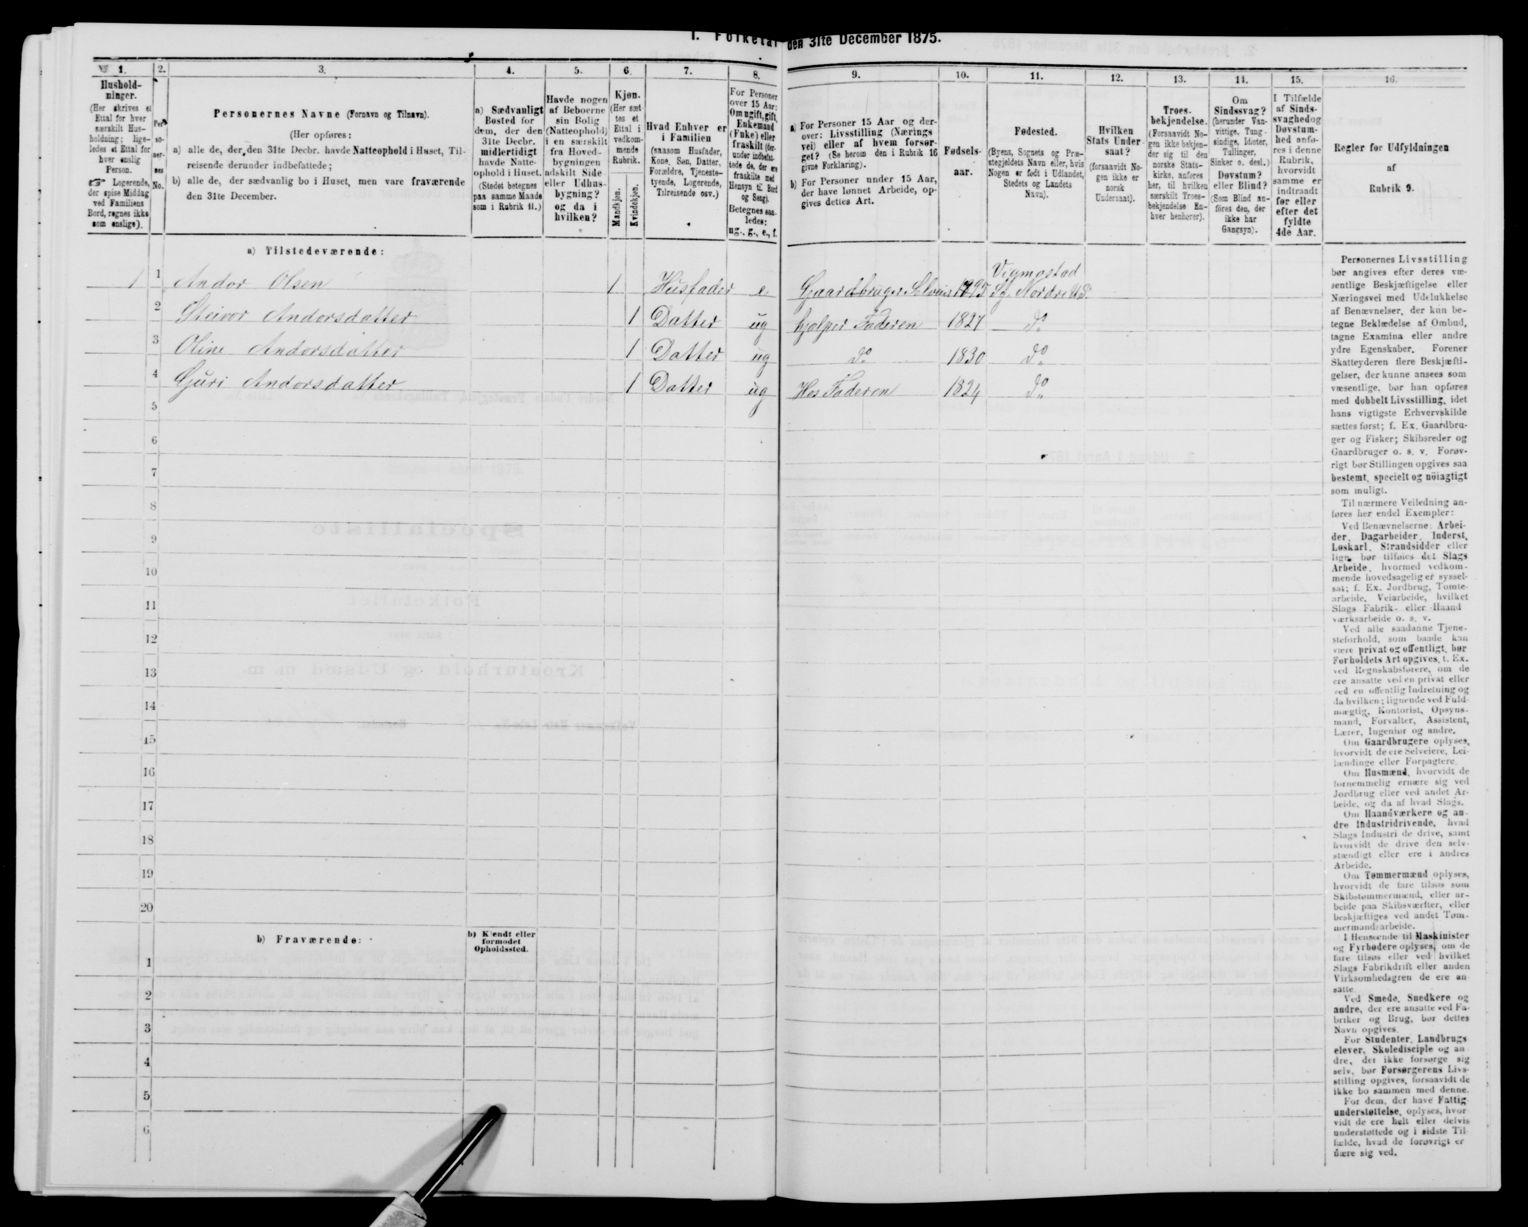 I. Folketal den 31te December 1875.
1. 2. 3. 4. 5. 6. 7. 8. 9. 10. 11. 12. 13. 14. 15. 16.
Hushold-
ninger.
(Her skrives et
Ettal for hver
særskilt Hus-
holdning; lige-
ledes et Ettal for
hver enslig
Person.
☞ Logerende,
der spise Middag
ved Familiens
Bord, regnes ikke
som enslige).
Per-
so-
ner-
nes
No.
Personernes Navne (Fornavn og Tilnavn).
(Her opføres:
a) alle de, der den 31te Decbr. havde Natteophold i Huset, Til-
reisende derunder indbefattede;
b) alle de, der sædvanlig bo i Huset, men vare fraværende
den 31te December.
a) Sædvanligt
Bosted for
dem, der den
31te Decbr.
midlertidigt
havde Natte-
ophold i Huset.
(Stedet betegnes
paa samme Maade
som i Rubrik 11.)
Havde nogen
af Beboerne
sin Bolig
(Natteophold)
i en særskilt
fra Hoved-
bygningen
adskilt Side
eller Udhus-
bygning?
og da i
hvilken?
Kjøn.
(Her sæt-
tes et
Ettal i
vedkom-
mende
Rubrik.
Mandkjøn.
Kvindekjøn.
Hvad Enhver er
i Familien
(saasom Husfader,
Kone, Søn, Datter,
Forældre, Tjeneste-
tyende, Logerende,
Tilreisende osv.)
For Personer
over 15 Aar:
Om ugift, gift,
Enkemand
(Enke) eller
fraskilt (der-
under indbefat-
tede de, der ere
fraskilte med
Hensyn til Bord
og Seng).
Betegnes saa-
ledes:
ug., g., e., f.
a) For Personer 15 Aar og der-
over: Livsstilling (Nærings-
vei) eller af hvem forsør-
get? (Se herom den i Rubrik 16
givne Forklaring).
b) For Personer under 15 Aar,
der have lønnet Arbeide, op-
gives dettes Art.
Fødsels-
aar.
Fødested.
(Byens, Sognets og Præ-
stegjeldets Navn eller, hvis
Nogen er født i Udlandet,
Stedets og Landets
Navn).
Hvilken
Stats Under-
saat?
(forsaavidt No-
gen ikke er
norsk
Undersaat).
Troes-
bekjendelse.
(Forsaavidt No-
gen ikke bekjen-
der sig til den
norske Stats-
kirke, anføres
her, til hvilken
særskilt Troes-
bekjendelse En-
hver henhører).
Om
Sindssvag?
(herunder Van-
vittige, Tung-
sindige, Idioter,
Tullinger,
Sinker o. desl.)
Døvstum?
eller Blind?
(Som Blind an-
føres den, der
ikke har
Gangsyn).
I Tilfælde
af Sinds-
svaghed og
Døvstum-
hed anfø-
res i denne
Rubrik,
hvorvidt
samme er
indtraadt
før eller
efter det
fyldte
4de Aar.
Regler for Udfyldningen
af
Rubrik 9.
a) Tilstedeværende:
1 1 Andor Olsen 1 Husfader e Gaardbruger Selveier 1795 Vigmostad Sg. Nordre Ud.
2 Steivor Andorsdatter 1 Datter ug hjelper Faderen 1827 do
3 Oline Andorsdatter 1 Datter ug do 1830 do
4 Guri Andorsdatter 1 Datter ug Hos Faderen 1824 do
5
6
7
8
9
10
11
12
13
14
15
16
17
18
19
20
b) Fraværende:
b) Kjendt eller
formodet
Opholdssted.
1
2
3
4
5
6
Personernes Livsstilling
bør angives efter deres væ-
sentlige Beskjæftigelse eller
Næringsvei med Udelukkelse
af Benævnelser, der kun be-
tegne Beklædelse af Ombud,
tagne Examina eller andre
ydre Egenskaber. Forener
Skatteyderen flere Beskjæfti-
gelser, der kunne ansees som
væsentlige, bør han opføres
med dobbelt Livsstilling, idet
hans vigtigste Erhvervskilde
sættes først; f. Ex. Gaardbru-
ger og Fisker; Skibsreder og
Gaardbruger o. s. v. Forøv-
rigt bør Stillingen opgives saa
bestemt, specielt og nöiagtigt
som muligt.
Til nærmere Veiledning an-
føres her endel Exempler:
Ved Benævnelserne: Arbei-
der, Dagarbeider, Inderst,
Løskarl, Strandsidder eller
lign. bør tilføies det Slags
Arbeide, hvormed vedkom-
mende hovedsagelig er syssel-
sat; f. Ex. Jordbrug, Tomte-
arbeide, Veiarbeide, hvilket
Slags Fabrik- eller Haand-
værksarbeide o. s. v.
Ved alle saadanne Tjene-
steforhold, som baade kan
være privat og offentligt, bør
Forholdets Art opgives, t. Ex.
ved Regnskabsførere, om de
ere ansatte ved en privat eller
ved en offentlig Indretning og
da hvilken; lignende ved Fuld-
mægtig, Kontorist, Opsyns-
mand, Forvalter, Assistent,
Lærer, Ingeniør og andre.
Om Gaardbrugere oplyses,
hvorvidt de ere Selveiere, Lei-
lændinge eller Forpagtere.
Om Husmænd, hvorvidt de
fornemmelig ernære sig ved
Jordbrug eller ved andet Ar-
beide, og da af hvad Slags.
Om Haandværkere og an-
dre Industridrivende, hvad
Slags Industri de drive, samt
hvorvidt de drive den selv-
stændigt eller ere i andres
Arbeide.
Om Tømmermænd oplyses,
hvorvidt de fare tilsøs som
Skibstømmermænd, eller ar-
beide paa Skibsværfter, eller
beskjæftiges ved andet Tøm-
mermandsarbeide.
I Henseende til Maskinister
og Fyrbødere oplyses, om de
fare tilsøs eller ved hvilket
Slags Fabrikdrift eller anden
Virksomhedsgren de ere an-
satte.
Ved Smede, Snedkere og
andre, der ere ansatte ved Fa-
briker og Brug, bør dettes
Navn opgives.
For Studenter, Landbrugs-
elever, Skoledisciple og an-
dre, der ikke forsørge sig
selv, bør Forsørgerens Livs-
stilling opgives, forsaavidt de
ikke bo sammen med denne.
For dem, der have Fattig-
understøttelse, oplyses, hvor-
vidt de ere helt eller delvis
understøttede og i sidste Til-
fælde, hvad de forøvrigt er-
nære sig ved.